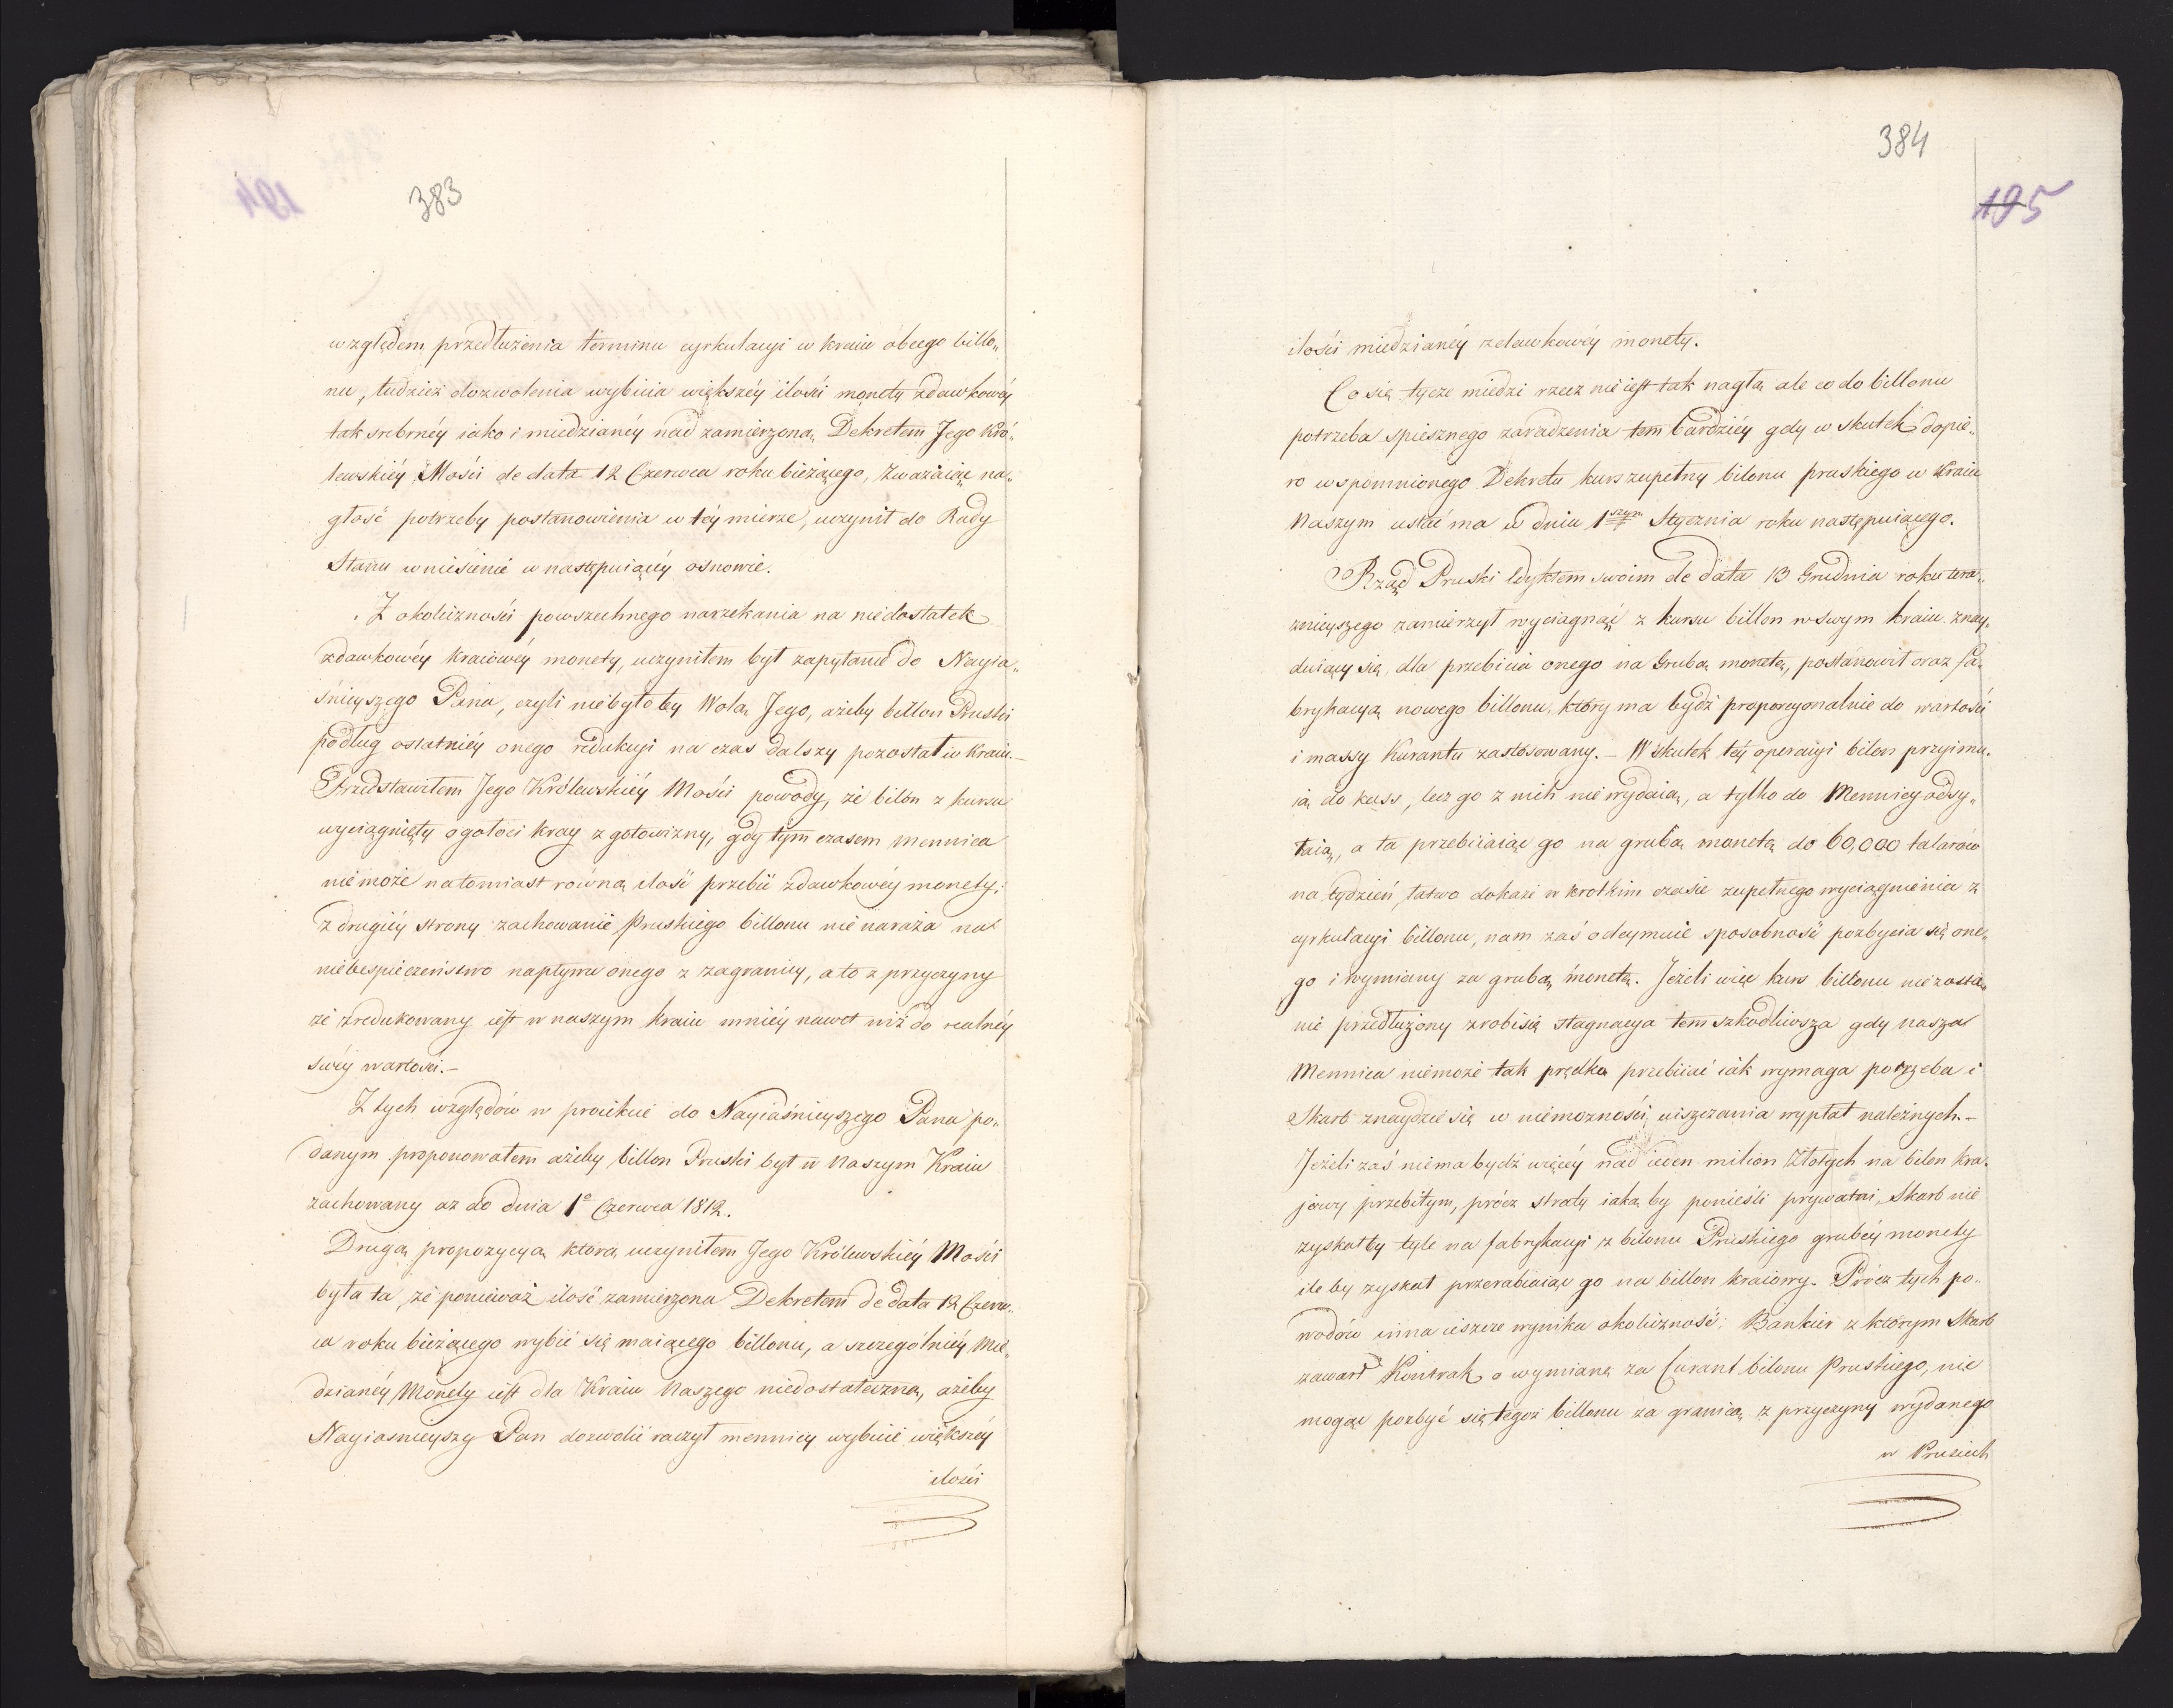 383
względem przedłużenia terminu cyrkulacyi w kraiu obcego billo„
nu, tudzież dozwolenia wybicia większéy ilości monety zdawkowéy
tak srebrnéy iako i miedzianéy nad zamierzoną Dekretem Jego Kró„
lewskiéy Mości de data 12 Czerwca roku bieżącego, zważaiąc na„
głość potrzeby postanowienia w téy mierze, uczynił do Rady
Stanu wniesienie w następuiącéy osnowie.
Z okoliczności powszechnego narzekania na niedostatek
zdawkowéy kraiowéy monety, uczyniłem był zapytanie do Nayia„
śnieyszego Pana, czyli niebyłoby Wolą Jego, ażeby billon Pruski
podług ostatniéy onego redukcyi na czas dalszy pozostał w kraiu.–
Przedstawiłem Jego Królewskiéy Mości powody, że bilon z kursu
wyciągnięty ogołoci kray z gotowizny, gdy tym czasem mennica
nie może natomiast równą ilość przebić zdawkowéy monety:
z drugiéy strony zachowanie Pruskiego billonu nie naraża na
niebespieczeństwo napływu onego z zagranicy, a to z przyczyny
że zredukowany iest w naszym kraiu mniéy nawet niż do realnéy
swéy wartości.–
Z tych względów w proiekcie do Nayiaśnieyszego Pana po„
danym proponowałem ażeby billon Pruski był w Naszym Kraiu
zachowany az do dnia 1º Czerwca 1812.
Drugą propozycyą którą uczyniłem Jego Królewskiéy Mości
była ta, że ponieważ ilość zamierzona Dekretem de data 12 Czerw„
ca roku bieżącego wybić się maiącego billonu, a szczególniéy Mie„
dzianéy Monety iest dla Kraiu Naszego niedostateczną, ażeby
Nayiasnieyszy Pan dozwolić raczył mennicy wybicie większéy
ilości
384
195
ilości miedzianéy zdawkowéy monety.
Co się tycze miedzi rzecz nie iest tak nagłą ale co do billonu
potrzeba spiesznego zaradzenia tem bardziéy gdy w skutek dopie„
ro wspomnionego Dekretu kurs zupełny bilonu pruskiego w Kraiu
Naszym ustać ma w dniu 1szym Stycznia roku następuiącego.
Rząd Pruski Edyktem swoim de data 13 Grudnia roku tera„
znieyszego zamierzył wyciągnąć z kursu billon w swym kraiu znay„
duiący się, dla przebicia onego na Grubą monetę, postanowił oraz fa„
brykacyą nowego billonu, który ma bydź proporcyonalnie do wartości
i massy Kurantu zastosowany.– W skutek téy operacyi bilon przyimu„
ią do kass, lecz go z nich nie wydaią, a tylko do Mennicy odsy„
łaią, a ta przebiiaiąc go na grubą monetę do 60,000 talarów
na tydzień, łatwo dokaże w krotkim czasie zupełnego wyciągnienia z
cyrkulacyi billonu, nam zaś odeymuie sposobność pozbycia się one„
go i wymiany za grubą monetę. Jeżeli więc kurs billonu nie zosta„
nie przedłużony zrobi się stagnacya tem szkodliwsza gdy nasza
Mennica niemoże tak prędko przebiiać iak wymaga potrzeba i
Skarb znaydzie się w niemożności uiszczania wypłat należnych.–
Jeżeli zaś niema bydź więcéy nad ieden milion Złotych na bilon kra„
jowy przebitym, prócz straty iaką by ponieśli prywatni, Skarb nie
zyskałby tyle na fabrykacyi z bilonu Pruskiego grubéy monety
ile by zyskał przerabiaiąc go na billon kraiowy. Prócz tych po„
wodów inna ieszcze wynika okoliczność: Bankier z którym Skarb
zawarł Kontrak o wymianę za Curant bilonu Pruskiego, nie
mogąc pozbyć się tegoż billonu za granicą z przyczyny wydanego
w Prusiech